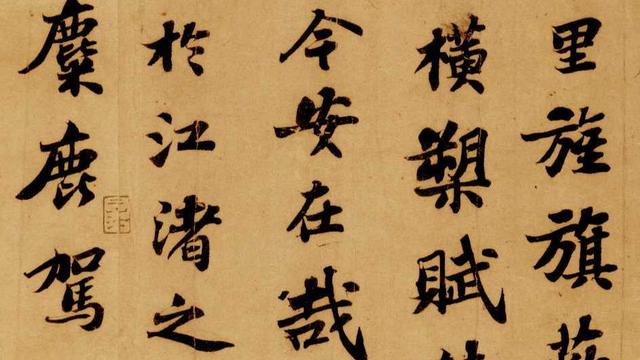 里旌旗
橫槊賦
今安在哉
於江渚之
麋鹿駕